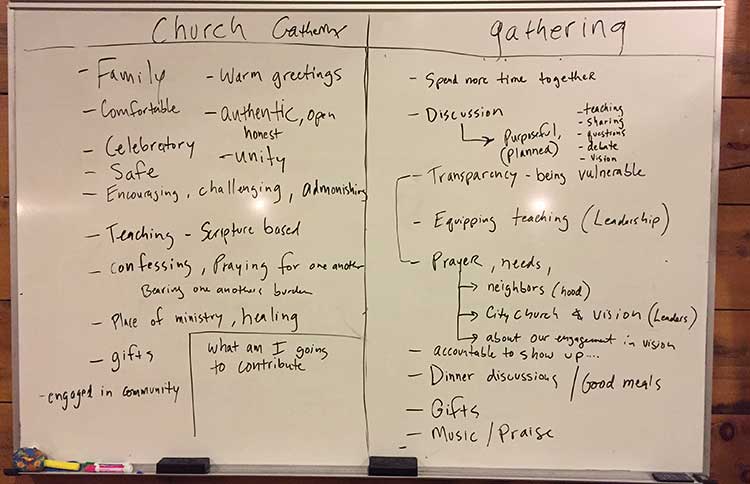 Church Gathering
- Family
- Comfortable
- Celebratory
- Safe
- Warm greetings
- authentic, open
honest
- unity
- Encouraging, challenging, admonishing
- Teaching - Scripture based
- confessing, Praying for one another
Bearing one anothers burden
- Place of ministry, healing
- gifts
- engaged in community
What am I going
to contribute
gathering
- Spend more time together
- Discussion
→ Purposeful,
(planned)
- teaching
- sharing
- questions
- debate
- vision
- Transparency - being vulnerable
- Equipping teaching (Leadership)
- Prayer, needs,
→ neighbors (hood)
→ City church & vision (Leaders)
→ about our engagement in vision
- accountable to show up....
- Dinner discussions / Good meals
- Gifts
- Music / Praise
-